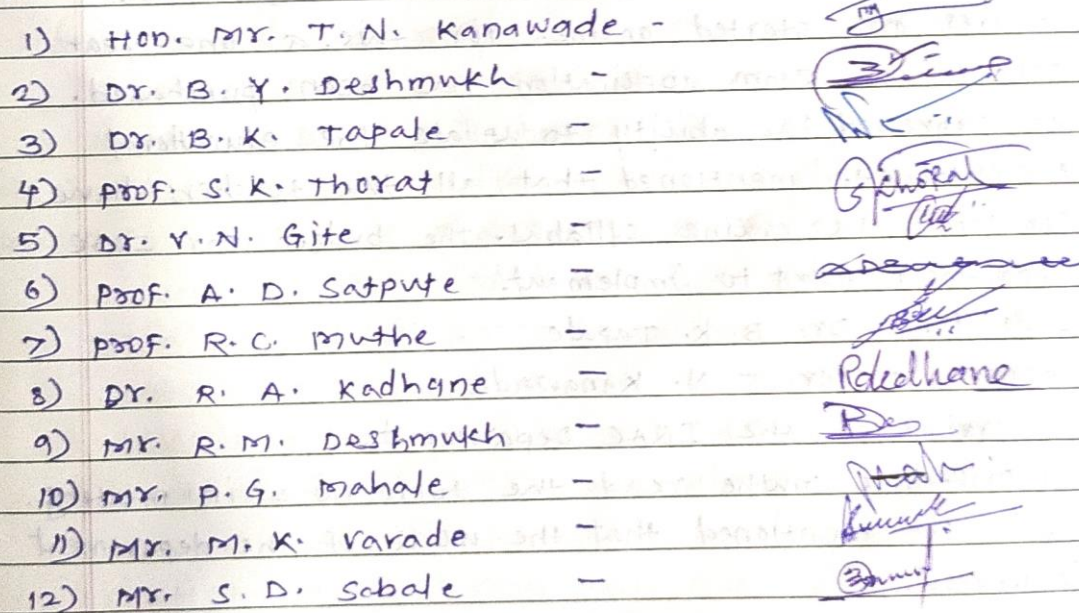 1) Hon. Mr. T. N. Kanawade -
2) Dr. B. Y. Deshmukh -
3) Dr. B. K. Tapale -
4) Prof. S. K. Thorat -
5) Dr. V. N. Gite -
6) Prof. A. D. Satpute -
7) Prof. R. C. Muthe -
8) Dr. R. A. Kadhane - Rdkdhane
9) Mr. R. M. Deshmukh -
10) Mr. P. G. Mahale -
11) Mr. M. K. Varade -
12) Mr. S. D. Sabale -